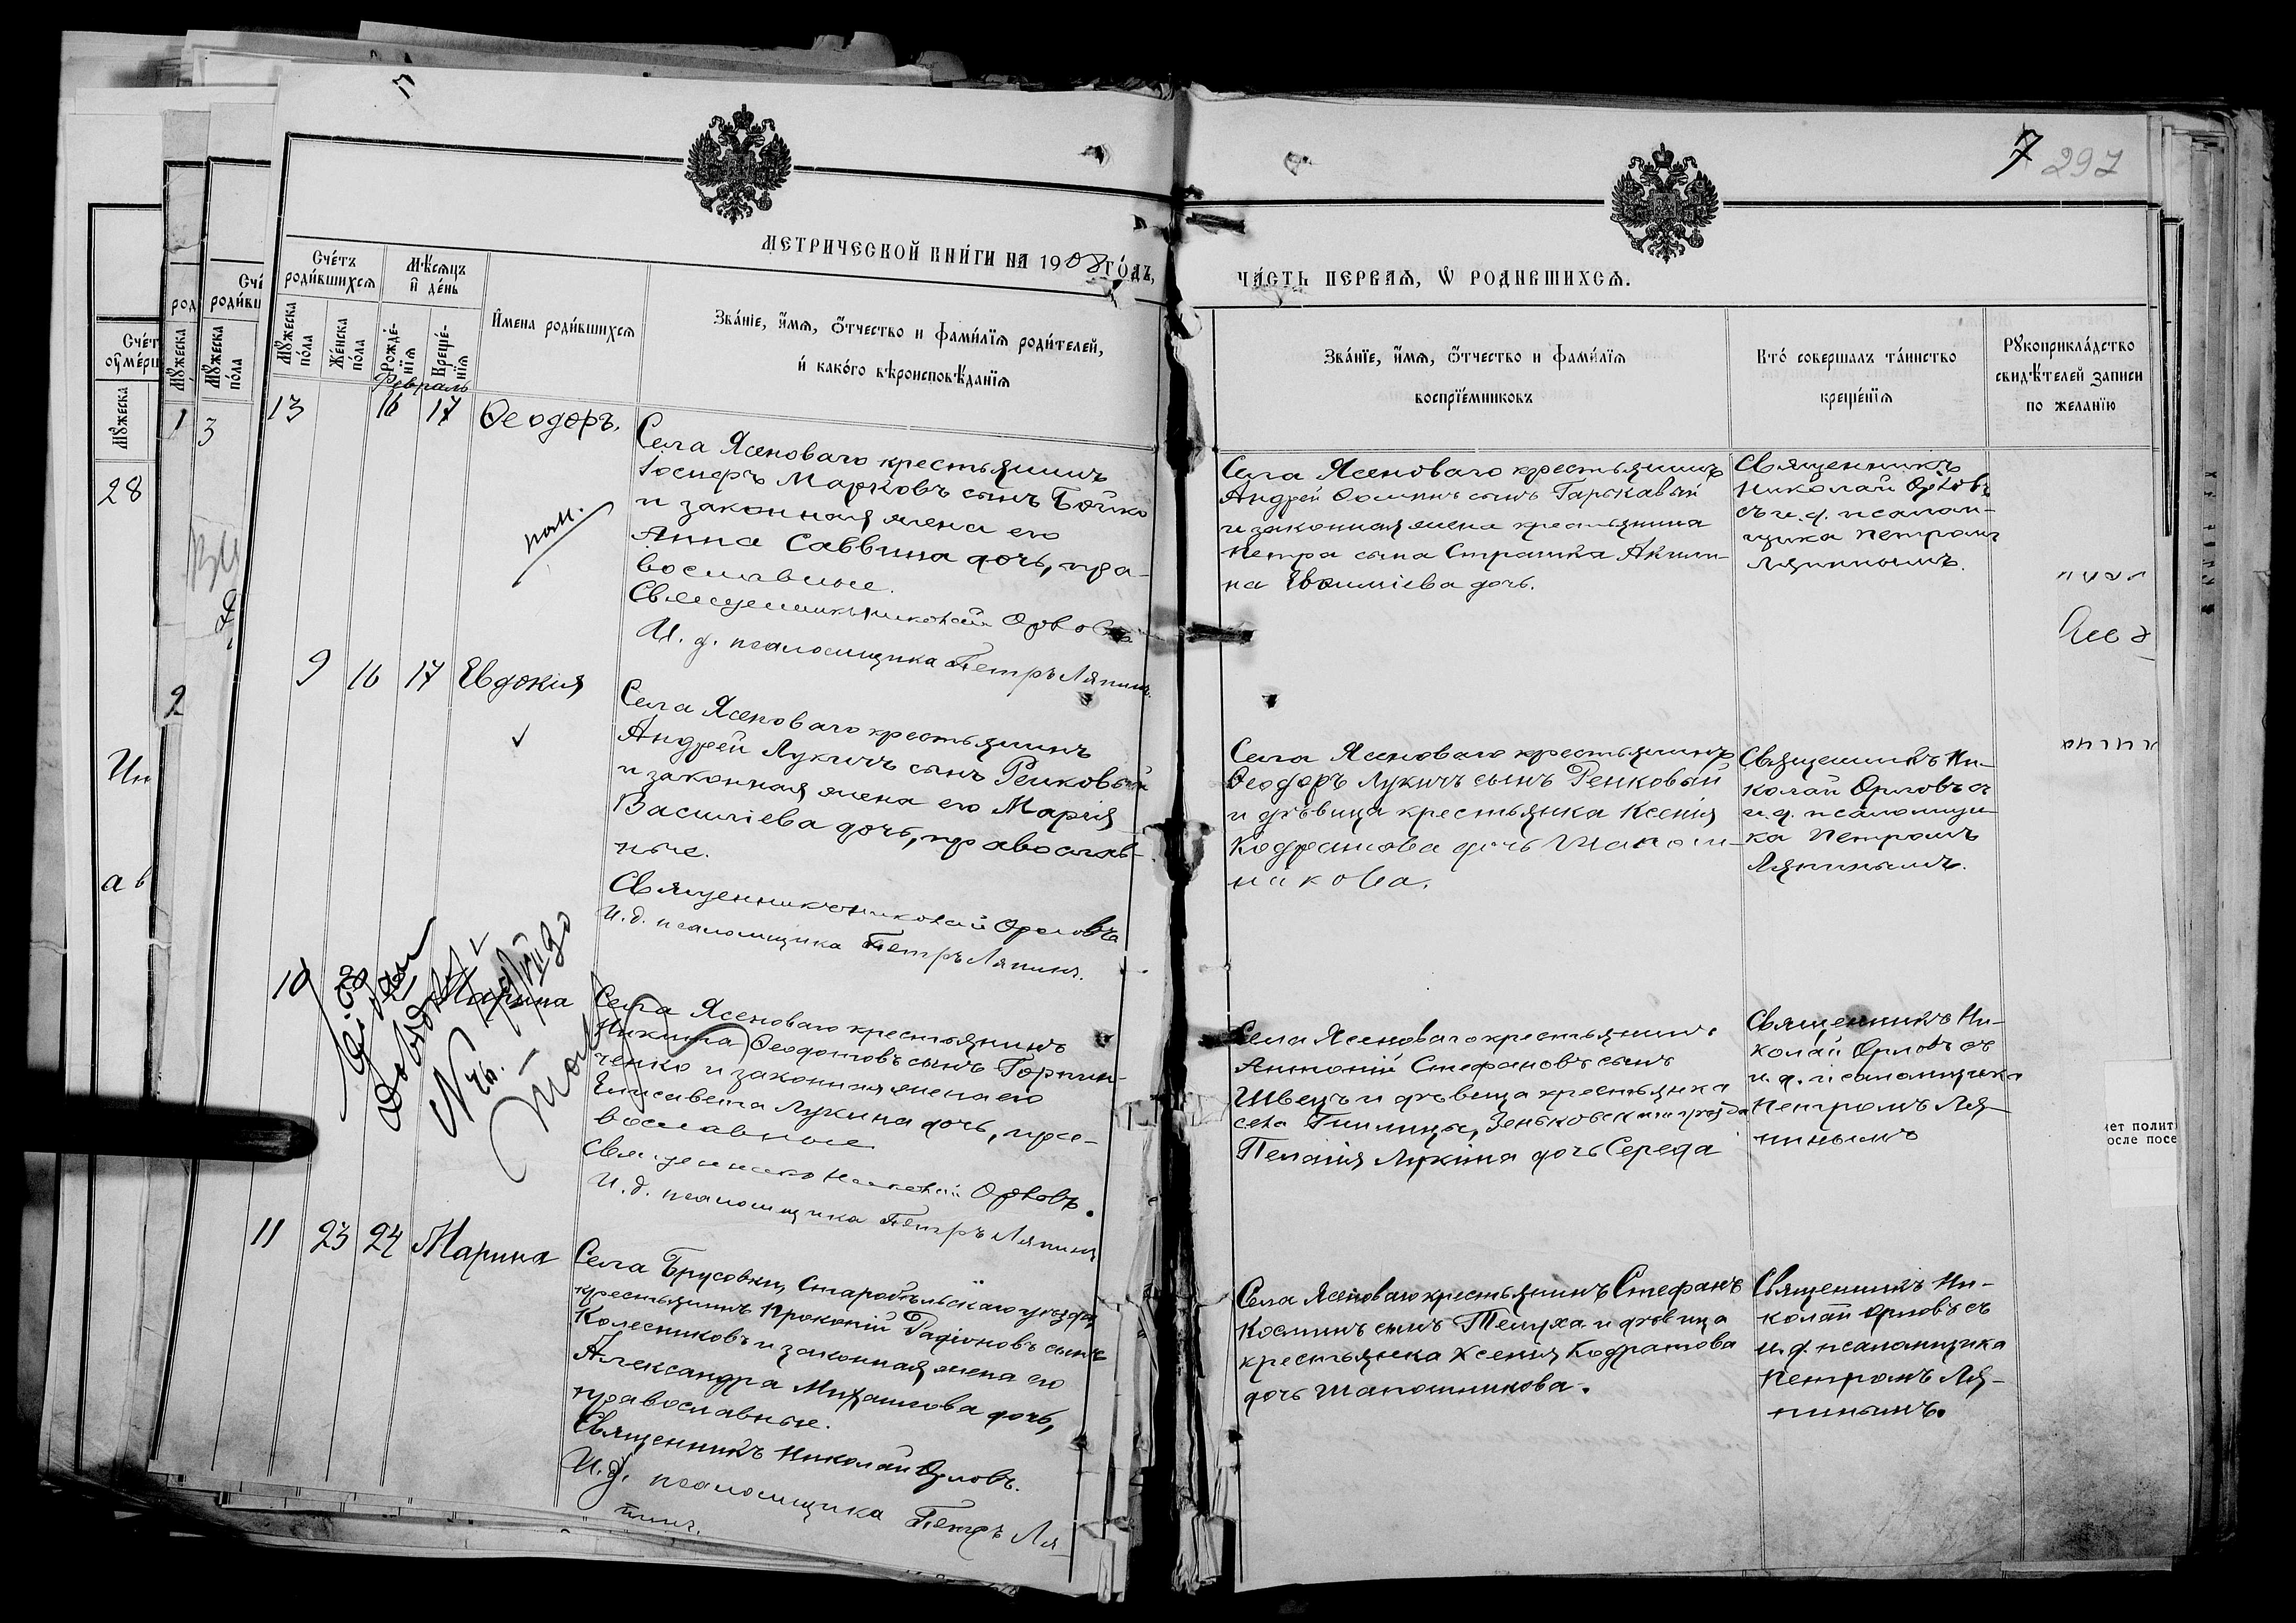 7 297
МЕТРИЧЕСКОЙ КНИ́ГИ НА 1908 ГО́ДЪ,
ЧА́СТЬ ПЕРВАЯ, Ѡ РОДИВШИХСЯ.
Сче́тъ роди́вшихся
Мѣ́сяцъ и҆ де́нь
Мꙋ́жеска по́ла
Же́нска по́ла
Рожде́нїя
Креще́нїя
И҆мена роди́вшихся
Зва́нїе, и҆́мя, ѻ҆́тчество и фами́лїя роди́телей,
и҆ како́го вѣроисповѣ́данїя
Зва́нїе, и҆́мя, ѻ҆́тчество и фами́лїя
воспрїе́мниковъ
Кто́ совершалъ та́инство
креще́нїя
Рꙋкоприкла́дство
свидѣ́телей записи
по жела́нїю
Февраль
13 16 17 Ѳеодоръ.
Села Ясеноваго крестьянинъ
Іосифъ Марковъ сынъ Бойко
и законная жена его
Анна Саввина дочь, пра-
вославные.
Священникъ Николай Орловъ
И. д. псаломщика Петръ Ляпинъ.
Села Ясеноваго крестьянинъ
Андрей Ѳоминъ сынъ Гарькавый
и законная жена крестьянина
Петра сына Страшка Акили-
на Евѳиміева дочь.
Священникъ
Николай Орловъ
съ и. д. псалом-
щика Петромъ
Ляпинымъ.
9 16 17 Евдокия
Села Ясеноваго крестьянинъ
Андрей Лукичъ сынъ Репковый
и законная жена его Марія
Василіева дочь, православ-
ные.
Священникъ Николай Орловъ
И. д. псаломщика Петръ Ляпинъ.
Села Ясеноваго крестьянинъ
Ѳеодоръ Лукичъ сынъ Репковый
и дѣвица крестьянка Ксенія
Кодратова дочь Шапош-
никова.
Священникъ Ни-
колай Орловъ съ
и. д. псаломщи-
ка Петромъ
Ляпинымъ.
10 Марина
Села Ясеноваго крестьянинъ
Никита Ѳеодотовъ сынъ Горпин-
ченко и законная жена его
Елисавета Лукина дочь, пра-
вославные
Священникъ Николай Орловъ.
И. д. псаломщика Петръ Ляпинъ
Села Ясеноваго крестьянинъ
Антоній Стефановъ сынъ
Швецъ и дѣвица крестьянка
села Зеньковск уѣзда
Пелагія Лукина дочь Середа
Священникъ Ни-
колай Орловъ съ
и. д. псаломщика
Петромъ Ля-
пинымъ
11 23 24 Марина
Села Брусовки, Старобѣльскаго уѣзда,
крестьянинъ Прокопій Радіоновъ сынъ
Колесниковъ и законная жена его
Александра Михаилова дочь,
православные.
Священникъ Николай Орловъ.
И. д. псаломщика Петръ Ля-
пинъ.
Села Ясеноваго крестьянинъ Стефанъ
Косминъ сынъ Телуха и дѣвица
крестьянка Ксенія Кодратова
дочь Шапошникова.
Священникъ Ни-
колай Орловъ съ
и. д. псаломщика
Петромъ Ля-
пинымъ.